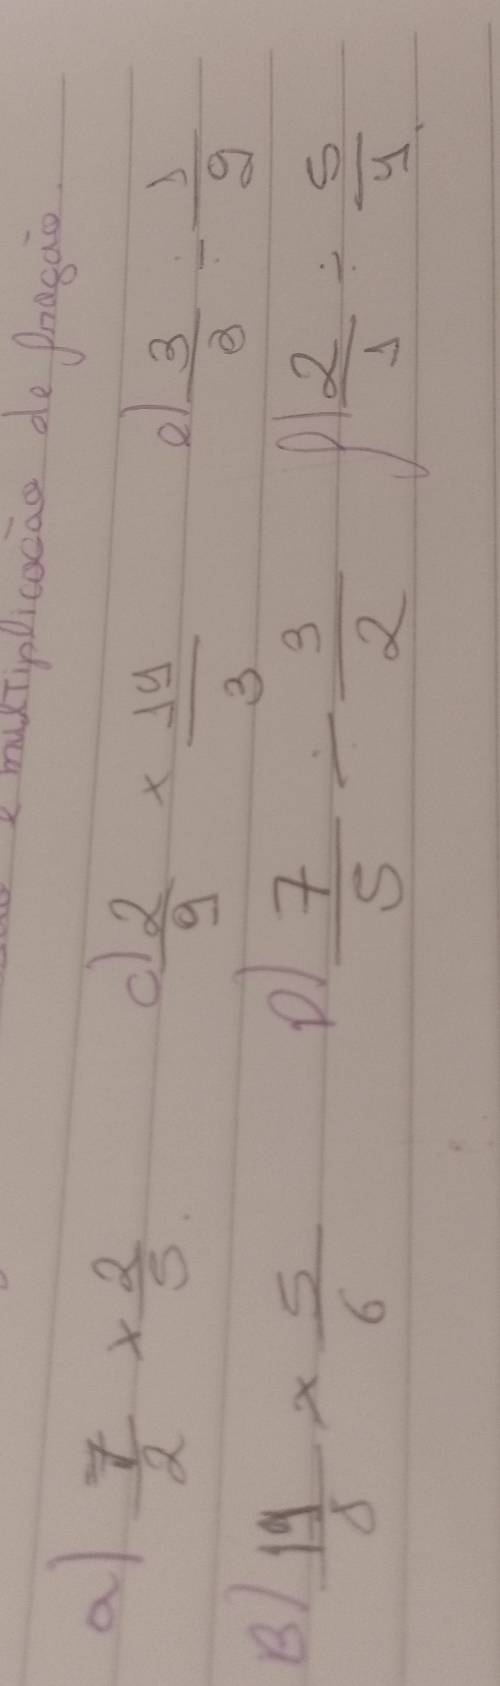 e multiplicação de fração.
a) 7/2 x 2/5 c) 2/9 x 14/3 e) 3/8 ÷ 1/9
B) 14/8 x 5/6 D) 7/5 ÷ 3/2 f) 2/1 ÷ 5/4